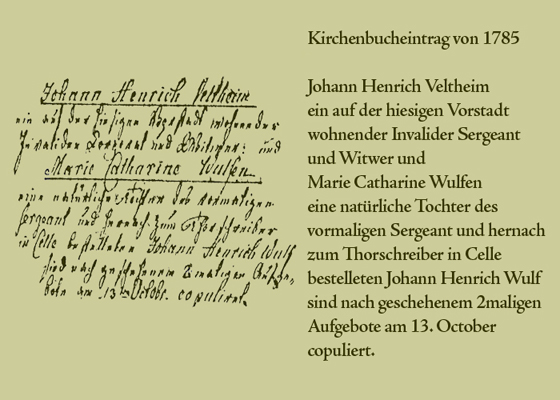 Johann Henrich Veltheim
ein auf der hiesigen Vorstadt wohnender
Invalider Sergeant und Witwer: und
Marie Catharine Wulfen.
eine natürliche Tochter des vormaligen
Sergeant und hernach zum Thorschreiber
in Celle bestelleten Johann Henrich Wulf
sind nach geschehenem 2maligen Aufge-
bote am 13. Octobr. copuliert.
Kirchenbucheintrag von 1785
Johann Henrich Veltheim
ein auf der hiesigen Vorstadt
wohnender Invalider Sergeant
und Witwer und
Marie Catharine Wulfen
eine natürliche Tochter des
vormaligen Sergeant und hernach
zum Thorschreiber in Celle
bestelleten Johann Henrich Wulf
sind nach geschehenem 2maligen
Aufgebote am 13. October
copuliert.